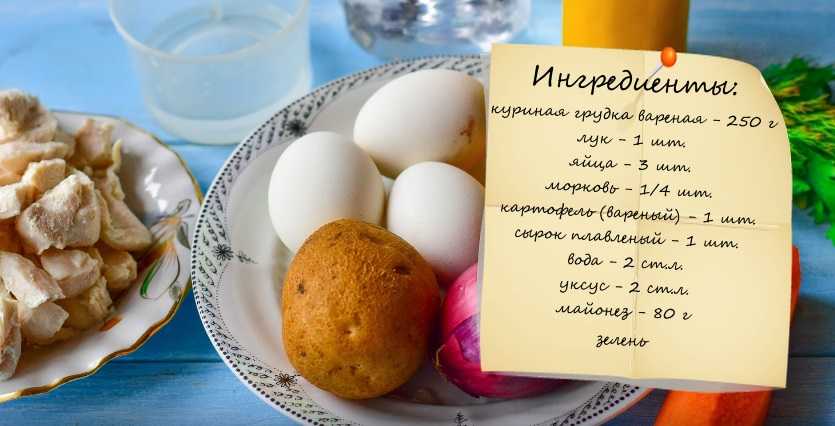 Ингредиенты:
куриная грудка вареная - 250 г
лук - 1 шт.
яйца - 3 шт.
морковь - 1/4 шт.
картофель (вареный) - 1 шт.
сырок плавленый - 1 шт.
вода - 2 ст.л.
уксус - 2 ст.л.
майонез - 80 г
зелень